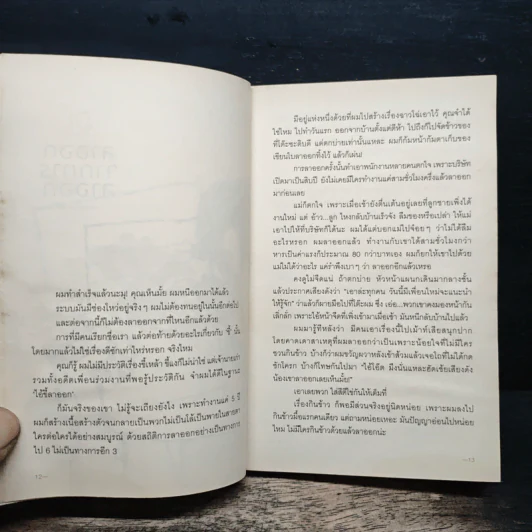 ผมทำสำเร็จแล้วนะมุ! คุณเห็นมั้ย ผมหนีออกมาได้แล้ว
ระบบมันมีช่องโหว่อยู่จริงๆ ผมไม่ต้องทนอยู่ในนั้นอีกต่อไป
และต่อจากนี้ก็ไม่ต้องลาออกจากที่ไหนอีกแล้วด้วย
การที่มีคนเรียกชื่อเรา แล้วต่อท้ายด้วยอะไรเกี่ยวกับ ขี้ นั้น
โดยมากแล้วไม่ใช่เรื่องดีซักเท่าไหร่หรอก จริงไหม
คุณก็รู้ ผมไม่มีประวัติเรื่องขี้เหล้า ขี้แงก็ไม่น่าใช่ แต่เจ้านายเก่า
รวมทั้งอดีตเพื่อนร่วมงานที่พอรู้ประวัติกัน จำผมได้ดีในฐานะ
"ไอ้ขี้ลาออก"
ก็มันจริงของเขา ไม่รู้จะเถียงยังไง เพราะทำงานแค่ 5 ปี
ผมก็สร้างเนื้อสร้างตัวจนกลายเป็นพวกไม่เป็นโล้เป็นพายในสายตา
ใครต่อใครได้อย่างสมบูรณ์ ด้วยสถิติการลาออกอย่างเป็นทางการ
ไป 6 ไม่เป็นทางการอีก 3
มีอยู่แห่งหนึ่งด้วยที่ผมไปสร้างเรื่องฉาวโฉ่เอาไว้ คุณจำได้
ใช่ไหม ไปทำวันแรก ออกจากบ้านตั้งแต่ตีห้า ไปถึงก็ไปจัดข้าวของ
ที่โต๊ะซะดิบดี แต่ตกบ่ายเท่านั้นแหละ ผมก็ก้มหน้าก้มตาเก็บของ
เขียนใบลาออกทิ้งไว้ แล้วก็เผ่น!
การลาออกครั้งนั้นทำเอาพนักงานหลายคนตกใจ เพราะบริษัท
เปิดมาเป็นสิบปี ยังไม่เคยมีใครทำงานแค่สามชั่วโมงครึ่งแล้วลาออก
มาก่อนเลย
แม่ก็ตกใจ เพราะเมื่อเช้ายังตื่นเต้นอยู่เลยที่ลูกชายเพิ่งได้
งานใหม่ แต่ อ้าว...ลูก ไหงกลับบ้านเร็วจัง ลืมของหรือเปล่า ให้แม่
เอาไปให้ที่บริษัทก็ได้นะ ผมได้แต่บอกแม่ไปจ๋อยๆ ว่าไม่ได้ลืม
อะไรหรอก ผมลาออกแล้ว ทำงานกับเขาได้สามชั่วโมงกว่า
หารเป็นค่าแรงก็ประมาณ 80 กว่าบาทเอง ผมก็ยกให้เขาไปด้วย
แม่ไม่ได้ว่าอะไร แต่รำพึงเบาๆ ว่า ลาออกอีกแล้วเหรอ
คงดูไม่จืดแน่ ถ้าตกบ่าย หัวหน้าแผนกเดินมากลางชั้น
แล้วประกาศเสียงดังว่า "เอาล่ะทุกคน วันนี้มีเพื่อนใหม่จะแนะนำ
ให้รู้จัก" ว่าแล้วก็ผายมือไปที่โต๊ะผม ซึ่ง เอ่อ...พวกเขาคงมองหน้ากัน
เลิ่กลั่ก เพราะไอ้หน้าจืดที่เพิ่งเข้ามาเมื่อเช้า มันหนีกลับบ้านไปแล้ว
ผมมารู้ทีหลังว่า มีคนเอาเรื่องนี้ไปเม้าท์เสียสนุกปาก
โดยคาดเดาสาเหตุที่ผมลาออกว่าเป็นเพราะน้อยใจที่ไม่มีใคร
ชวนกินข้าว บ้างก็ว่าผมขวัญผวาหลังเข้าส้วมแล้วเจอโถที่ไม่ได้กด
ชักโครก บ้างก็โทษกันไปมา "ไอ้โอ๊ต มึงนั่นแหละฮัดเช้ยเสียงดัง
น้องเขาลาออกเลยเห็นมั้ย!"
เอาเลยพวก ใส่สีตีไข่กันให้เต็มที่
เรื่องกินข้าว ก็พอมีส่วนจริงอยู่นิดหน่อย เพราะผมลงไป
กินข้าวมื้อแรกคนเดียว แต่ถามหน่อยเหอะ มันปัญญาอ่อนไปหน่อย
ไหม ไม่มีใครกินข้าวด้วยแล้วลาออกน่ะ